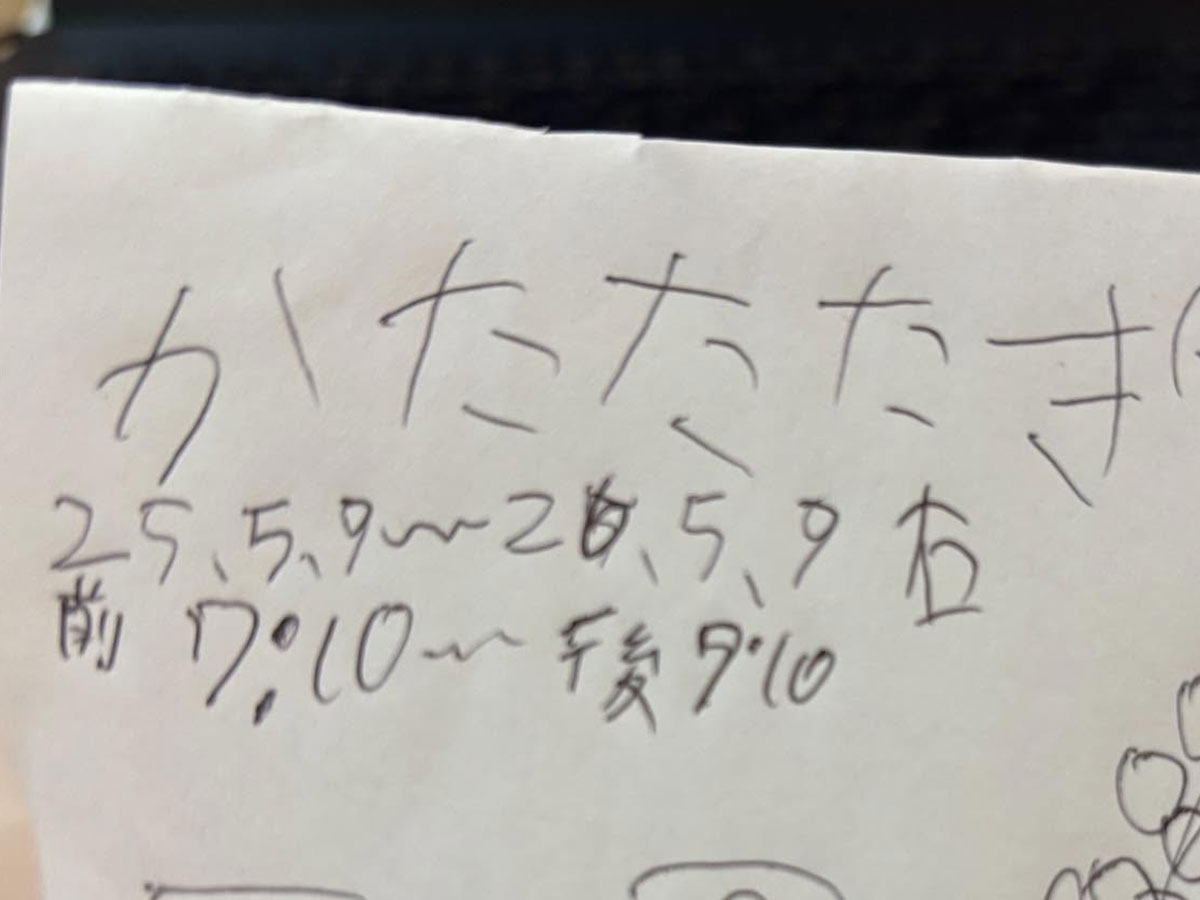 かたたたき(
25、5、9〜26、5、9
前 7:10〜 後 7:10